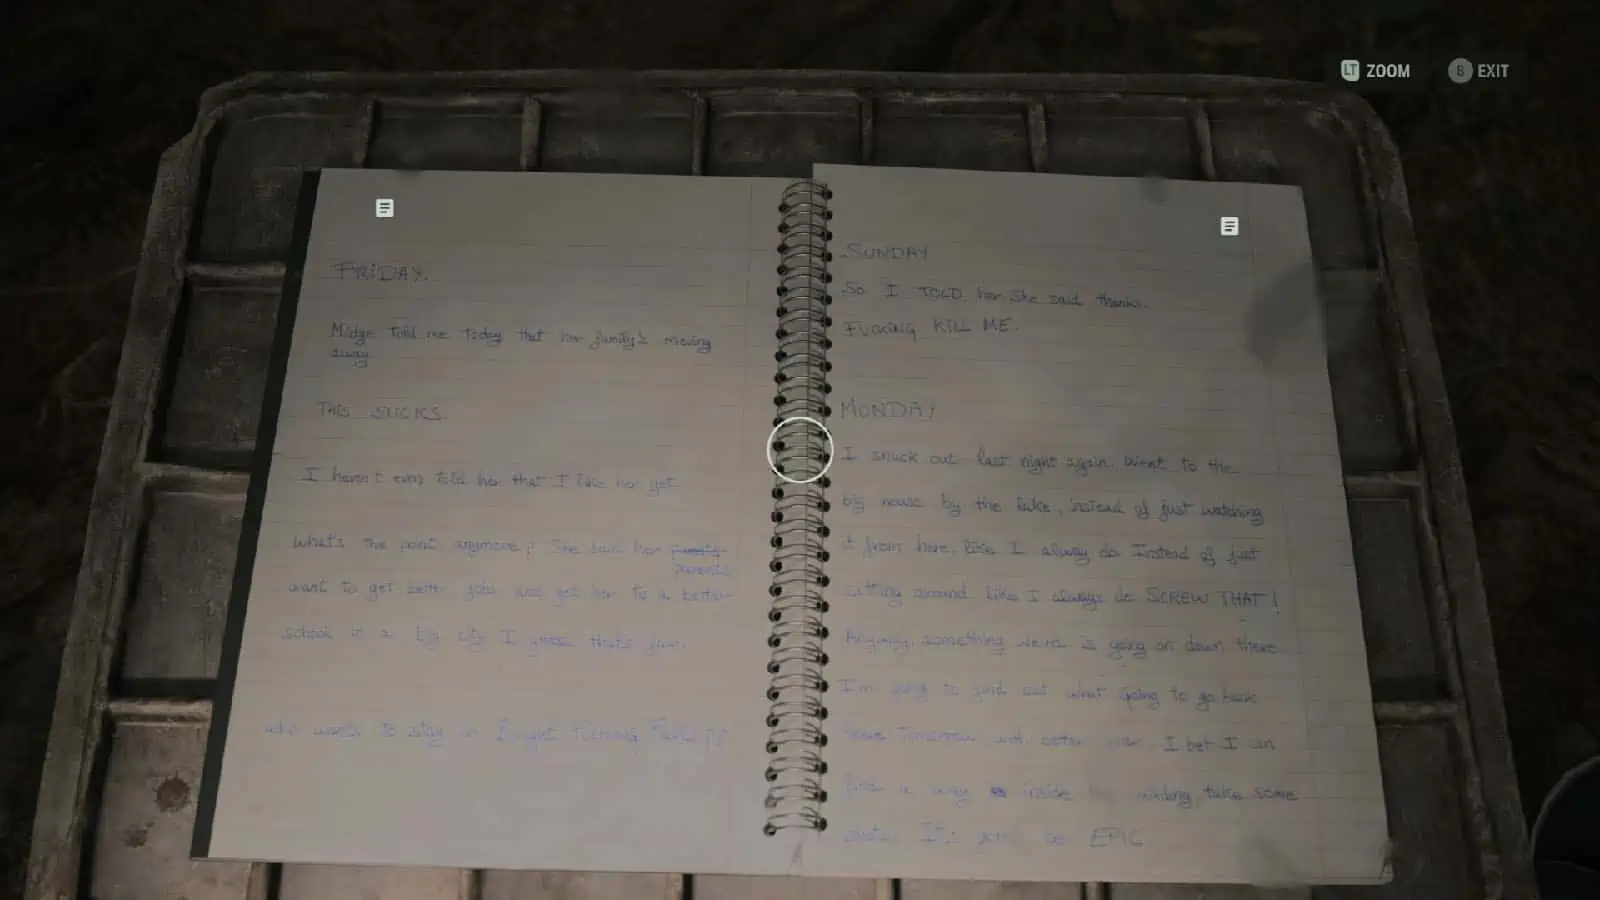 LT ZOOM
B EXIT
FRIDAY.
Midge told me today that her family's moving
away
THIS SUCKS
I haven't even told her that I like her yet
what's the point anymore? She said her family
parents
want to get better jobs and get her to a better
school in a big city I guess that's fair.
who wants to stay in Bright Fucking Falls ??
SUNDAY
So I TOLD her. She said thanks.
FUCKING KILL ME.
MONDAY
I snuck out last night again. Went to the
big house by the lake, instead of just watching
it from here, like I always do. Instead of just
sitting around like I always do SCREW THAT!
Anyway, something weird is going on down there
I'm going to find out what Going to go back
there Tomorrow with I bet I can
find a way inside building, take some
It's gonna be EPIC